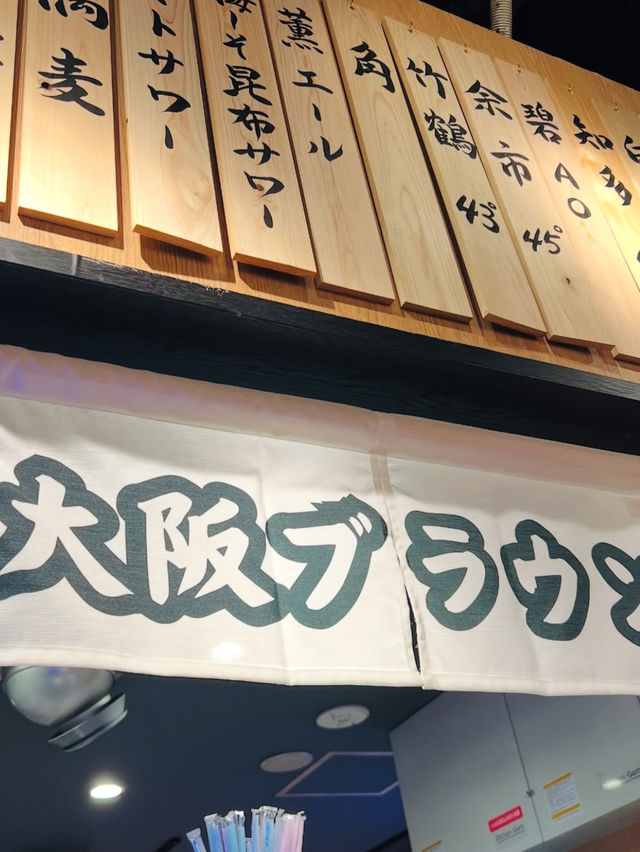 麦
トサワー
そ昆布サワー
薫エール
角
竹鶴 43°
余市 45°
碧AO
知多
大阪ブラウン